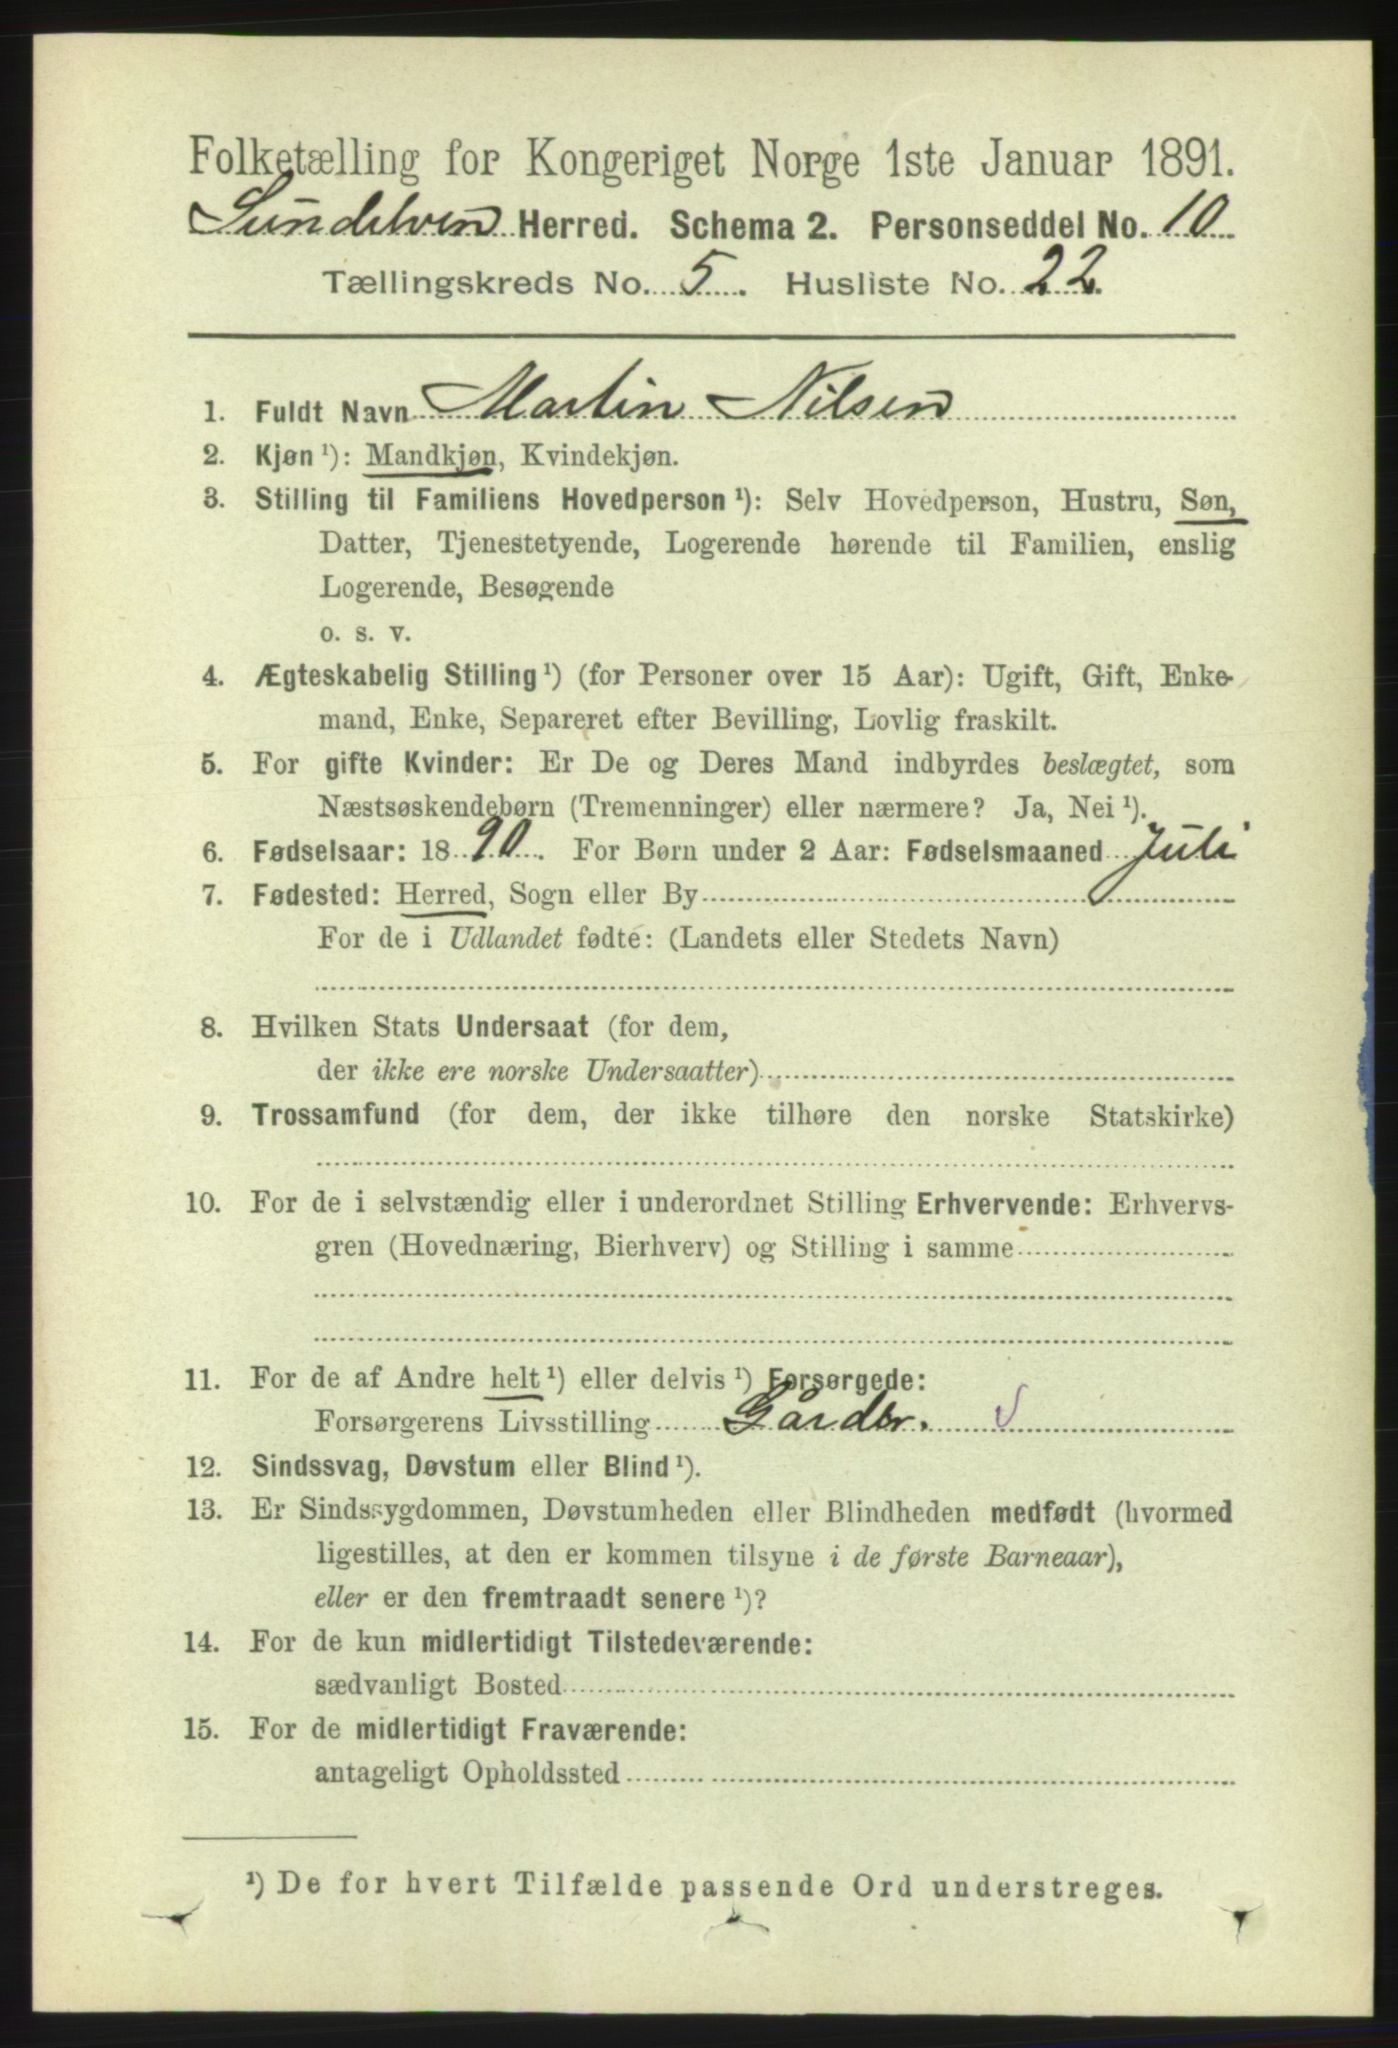 Folketælling for Kongeriget Norge 1ste Januar 1891.
Sundelven Herred. Schema 2. Personseddel No. 10
Tællingskreds No. 5. Husliste No. 22.
1. Fuldt Navn Martin Nilsen
2. Kjøn ¹): Mandkjøn, Kvindekjøn.
3. Stilling til Familiens Hovedperson ¹): Selv Hovedperson, Hustru, Søn,
Datter, Tjenestetyende, Logerende hørende til Familien, enslig
Logerende, Besøgende
o. s. v.
4. Ægteskabelig Stilling ¹) (for Personer over 15 Aar): Ugift, Gift, Enke-
mand, Enke, Separeret efter Bevilling, Lovlig fraskilt.
5. For gifte Kvinder: Er De og Deres Mand indbyrdes beslægtet, som
Næstsøskendebørn (Tremenninger) eller nærmere? Ja, Nei ¹).
6. Fødselsaar: 1890. For Børn under 2 Aar: Fødselsmaaned Juli
7. Fødested: Herred, Sogn eller By
For de i Udlandet fødte: (Landets eller Stedets Navn)
8. Hvilken Stats Undersaat (for dem,
der ikke ere norske Undersaatter)
9. Trossamfund (for dem, der ikke tilhøre den norske Statskirke)
10. For de i selvstændig eller i underordnet Stilling Erhvervende: Erhvervs-
gren (Hovednæring, Bierhverv) og Stilling i samme
11. For de af Andre helt ¹) eller delvis ¹) Forsørgede:
Forsørgerens Livsstilling Gårdbr.
12. Sindssvag, Døvstum eller Blind ¹).
13. Er Sindssygdommen, Døvstumheden eller Blindheden medfødt (hvormed
ligestilles, at den er kommen tilsyne i de første Barneaar),
eller er den fremtraadt senere ¹)?
14. For de kun midlertidigt Tilstedeværende:
sædvanligt Bosted
15. For de midlertidigt Fraværende:
antageligt Opholdssted
¹) De for hvert Tilfælde passende Ord understreges.